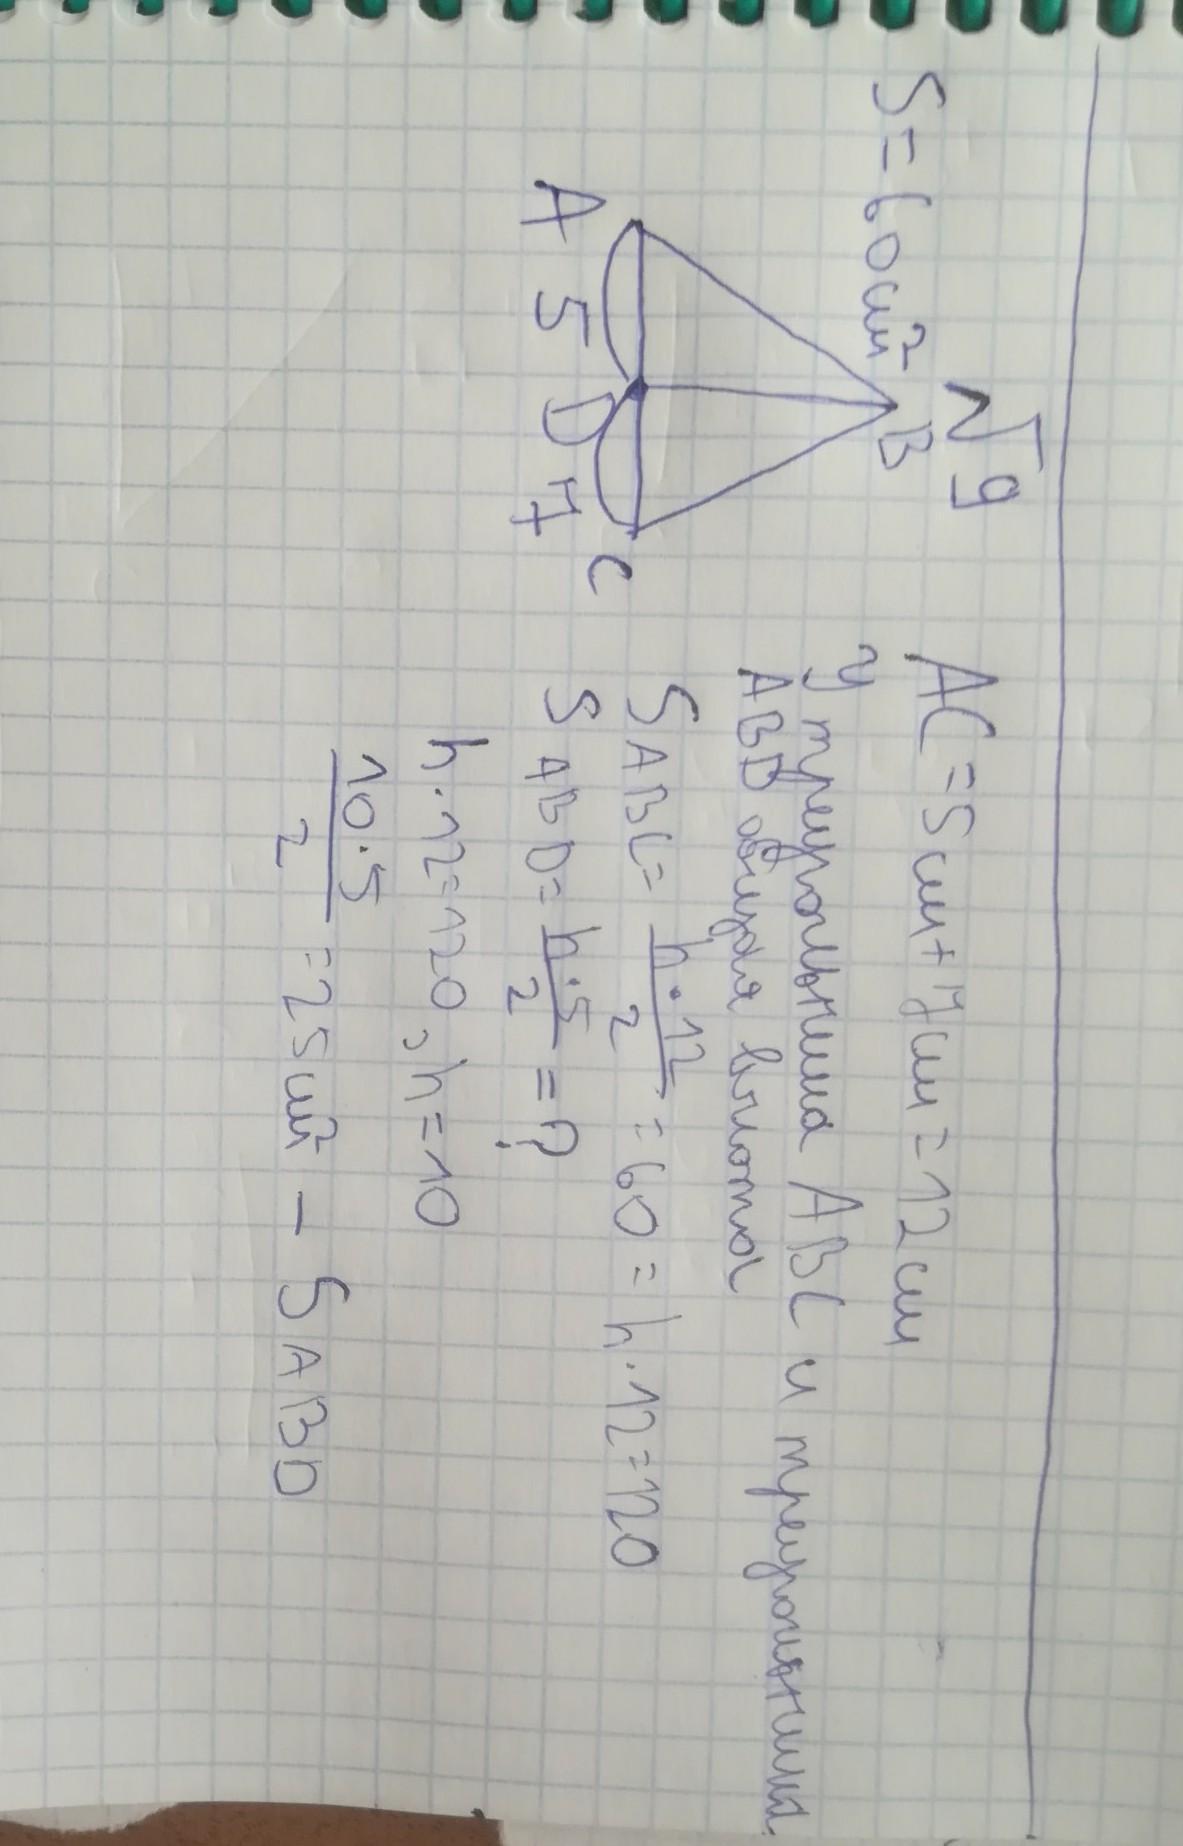 √9
S=60см²
B
A 5 D 7 C
AC=5см+7см=12см
У треугольника ABC и треугольника
ABD общая высота
S ABC= h·12/2 =60= h·12=120
S ABD= h·5/2 =?
h·12=120, h=10
10·5/2 =25см² – S ABD